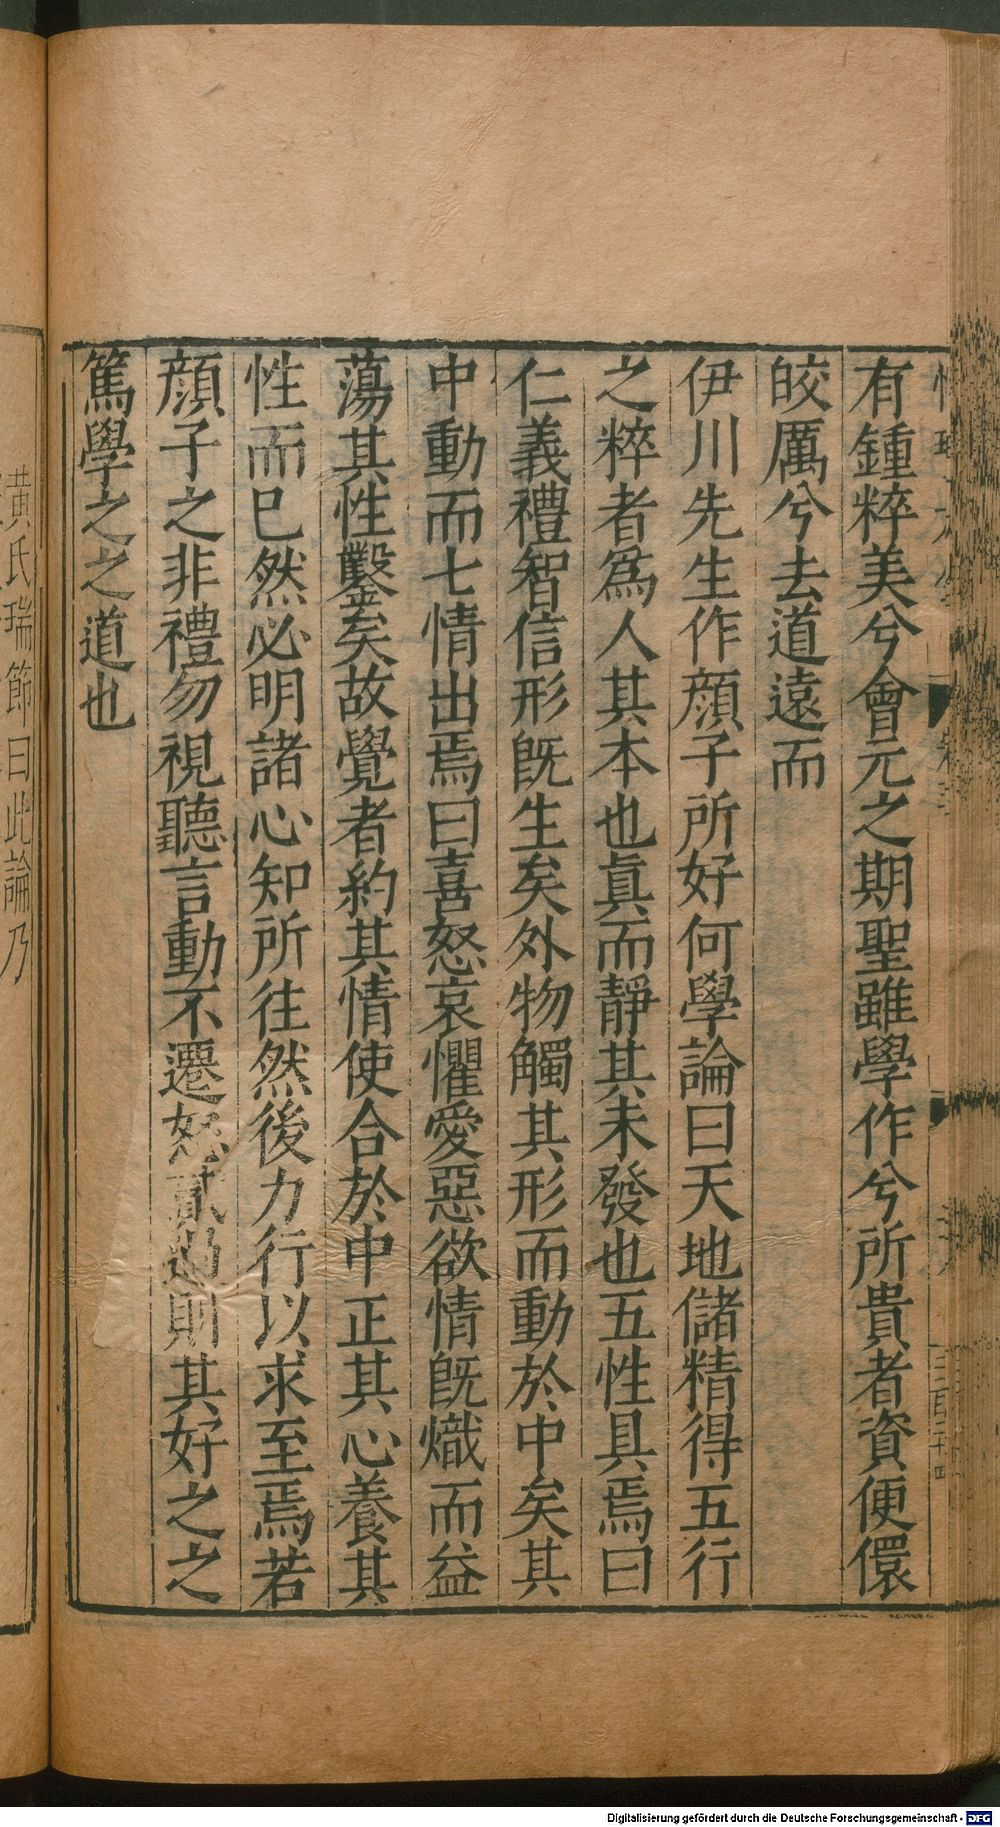 有鍾粹美兮會元之期聖雖學作兮所貴者資便儇
皎厲兮去道遠而
伊川先生作顏子所好何學論曰天地儲精得五行
之粹者爲人其本也眞而靜其未發也五性具焉曰
仁義禮智信形既生矣外物觸其形而動於中矣其
中動而七情出焉曰喜怒哀懼愛惡欲情既熾而益
蕩其性鑿矣故覺者約其情使合於中正其心養其
性而已然必明諸心知所往然後力行以求至焉若
顏子之非禮勿視聽言動不遷怒貳過則其好之之
篤學之之道也
黃氏瑞節曰此論乃
Digitalisierung gefördert durch die Deutsche Forschungsgemeinschaft - DFG